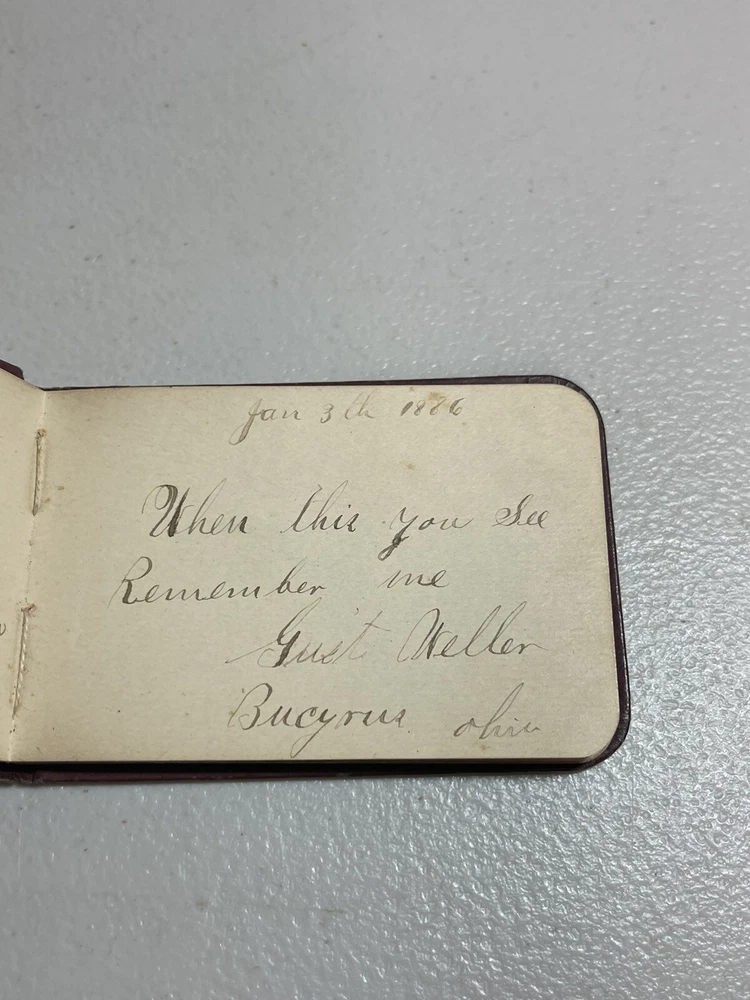 Jan 3th 1886
When this you See
Remember me
Gust Weller
Bucyrus ohio